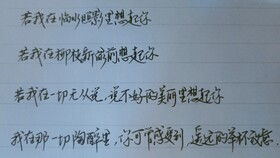 若我在临水照影里想起你
若我在柳枝新沏前想起你
若我在一切无从说，说不好的美丽里想起你
我在那一切陶醉里，你可曾感到，遥远的